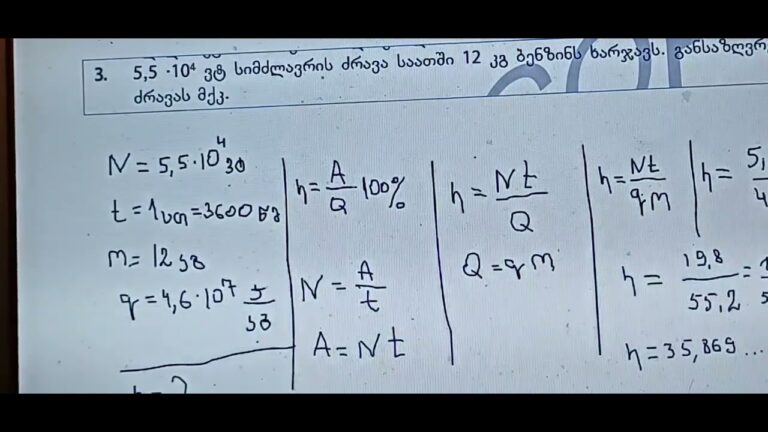 3. 5,5 ·10⁴ ვტ სიმძლავრის ძრავა საათში 12 კგ ბენზინს ხარჯავს. განსაზღვრ
ძრავას მქკ.
N = 5,5·10⁴ ვტ
t = 1სთ = 3600 წმ
m = 12 კგ
q = 4,6·10⁷ ჯ/კგ
η = ?
η = A/Q 100%
N = A/t
A = Nt
η = Nt/Q
Q = qm
η = Nt/qm
η = 5,/4
η = 19,8/55,2 = 1/5
η = 35,869 ...